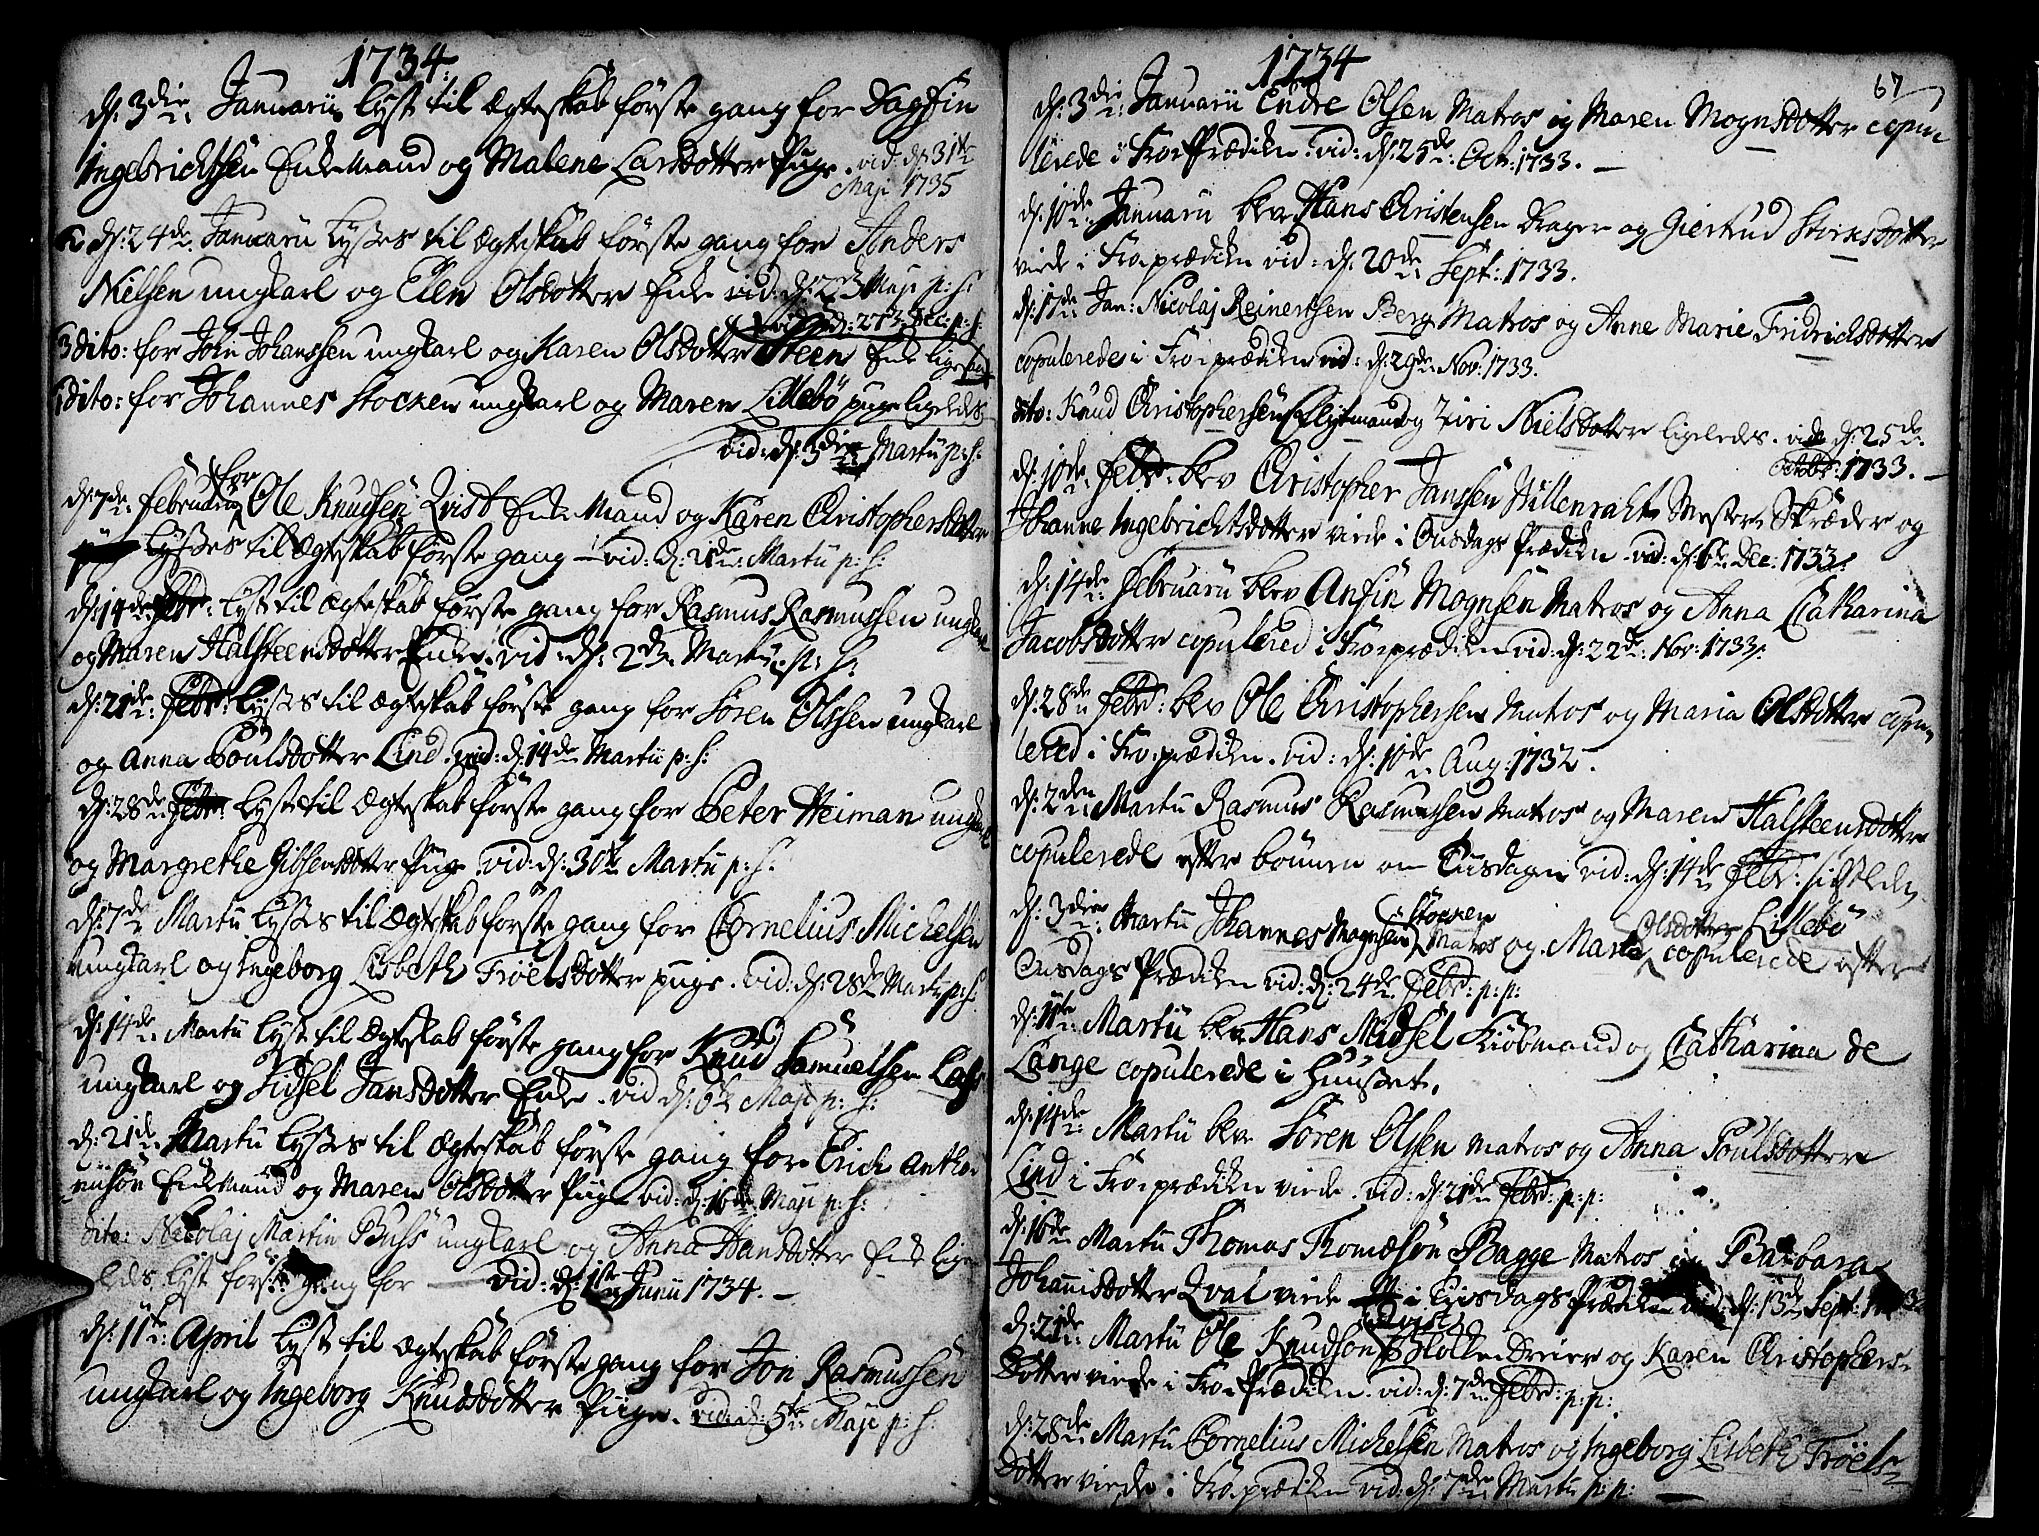 1734.
d: 3die Januarii lyst til Ægteskab første gang for Dagfin
Ingebrichtsen Enkemand og Malene Larsdotter Pige. vid: d: 31te
Maji 1735
d: 24de Januarii lyses til Ægteskab første gang for Anders
Nielsen ungkarl og Ellen Olsdotter Enke vid: d: Maji p: s:
vid: d: 27de Dec: p: s:
dito: for John Johanssen ungkarl og Karen Olsdotter Steen Enke
dito: for Johannes Stocken ungkarl og Maren Lillebö pige ligeledes
vid: d: 3die Martii p: s:
d: 7de Februarii for Ole Knudsen Qvist Enkemand og Karen Christophersdotter
lyses til Ægteskab første gang - vid: d: 21de Martii p: s:
d: 14de Febr: lyst til Ægteskab første gang for Rasmus Rasmussen ungkarl
og Maren Halsteensdotter Enke. vid: d: 2den Martii p: s:
d: 21de Febr: lyses til Ægteskab første gang for Sören Olssen ungkarl
og Anna Poulsdotter Lind. vid: d: 14de Martii p: s:
d: 28de Febr: lyst til Ægteskab første gang for Peter Heiman ungkarl
og Margrethe Gissensdotter Pige. vid: d: 30te Martii p: s:
d: 7de Martii lyses til Ægteskab første gang for Cornelius Michelsen
ungkarl og Ingeborg Lisbeth Tröelsdotter pige. vid: d: 28de Martii p: s:
d: 14de Martii lyst til Ægteskab første gang for Knud Samuelsen Lass
ungkarl og Sidsel Jansdotter Enke. vid d: 6te Maji p: s:
d: 21de Martii lyses til Ægteskab første gang for Erich Antho-
nisön Enkemand og Maren Olsdotter Pige vid: d: 16de Maji p: s:
dito: Nicolaj Martin Buss ungkarl og Anna Hansdotter Enke lige-
ledes lyst første gang for - vid: d: 1ste Junii 1734. -
d: 11te April lyst til Ægteskab første gang for Jon Rasmussen
ungkarl og Ingeborg Knudsdotter Pige. vid: d: 5te Maji p: s:
1734
67
d: 3die Januarii Endre Olsen Matros og Maren Mognsdotter copu-
lerede i Froeprædiken. vid: d: 25de Oct: 1733. -
d: 10de Januarii blev Hans Christensen Drager og Giertrud Storksdotter
viede i Froeprædiken vid: d: 20de Sept: 1733.
d: 17de Jan: Nicolaj Reinertsen Berg Matros og Anne Marie Fridrichsdotter
copulerede i Froeprædiken vid: d: 29de Nov: 1733.
dito: Knud Christophersen og Ziri Nielsdotter ligeledes. vid: d: 25de
Octobr: 1733. -
d: 10de Febr: blev Christopher Janssen Hillenracht Mester Skræder og
Johanne Ingebrichtsdotter viede i Onsdags Prædiken. vid: d: 6te Dec: 1733.
d: 14de Februarii blev Anfin Mognsen Matros og Anna Catharina
Jacobsdotter copulered i Froeprædiken vid: d: 22de Nov: 1733.
d: 28de Febr: blev Ole Christophersen Matros og Maria Olsdotter copu-
lered i Froeprædiken. vid: d: 10de Aug: 1732.
d: 2den Martii Rasmus Rasmussen Matros og Maren Halsteensdotter
copulerede efter bönnen om Tiisdagen vid: d: 14de Febr: sidstleden
d: 3die Martii Johannes Mognsen Stocken Matros og Maria Olsdotter Lillebö copulerede efter
Onsdags Prædiken vid: d: 24de Febr: p: p:
d: 11te Martii blev Hans Midsel Kiöbmand og Catharina de
Lange copulerede i Huuset.
d: 14de Martii blev Sören Olsen Matros og Anna Poulsdotter
Lind i Froeprædiken viede. vid: d: 21de Febr: p: p:
d: 16de Martii Thomas Thomæsön Bagge Matros og Barbara
Johannisdotter Qval viede i Tiisdags Prædiken vid: d: 13de Sept:
d: 21de Martii Ole Knudsön Qvist og Karen Christophers-
dotter viede i Froeprædiken. vid: d: 7de Febr: p: p:
d: 28de Martii Cornelius Michelsen Matros og Ingeborg Lisbeth Tröels-
dotter viede i Froeprædiken vid: d: 7de Martii p: p: -